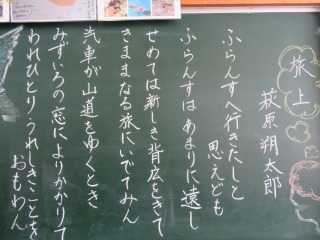 旅上
萩原朔太郎
ふらんすへ行きたしと
思えども
ふらんすは あまりに遠し
せめては新しき背広をきて
きままなる旅にいでてみん
汽車が山道をゆくとき
みずいろの窓によりかかりて
われひとり うれしきことを
おもわん